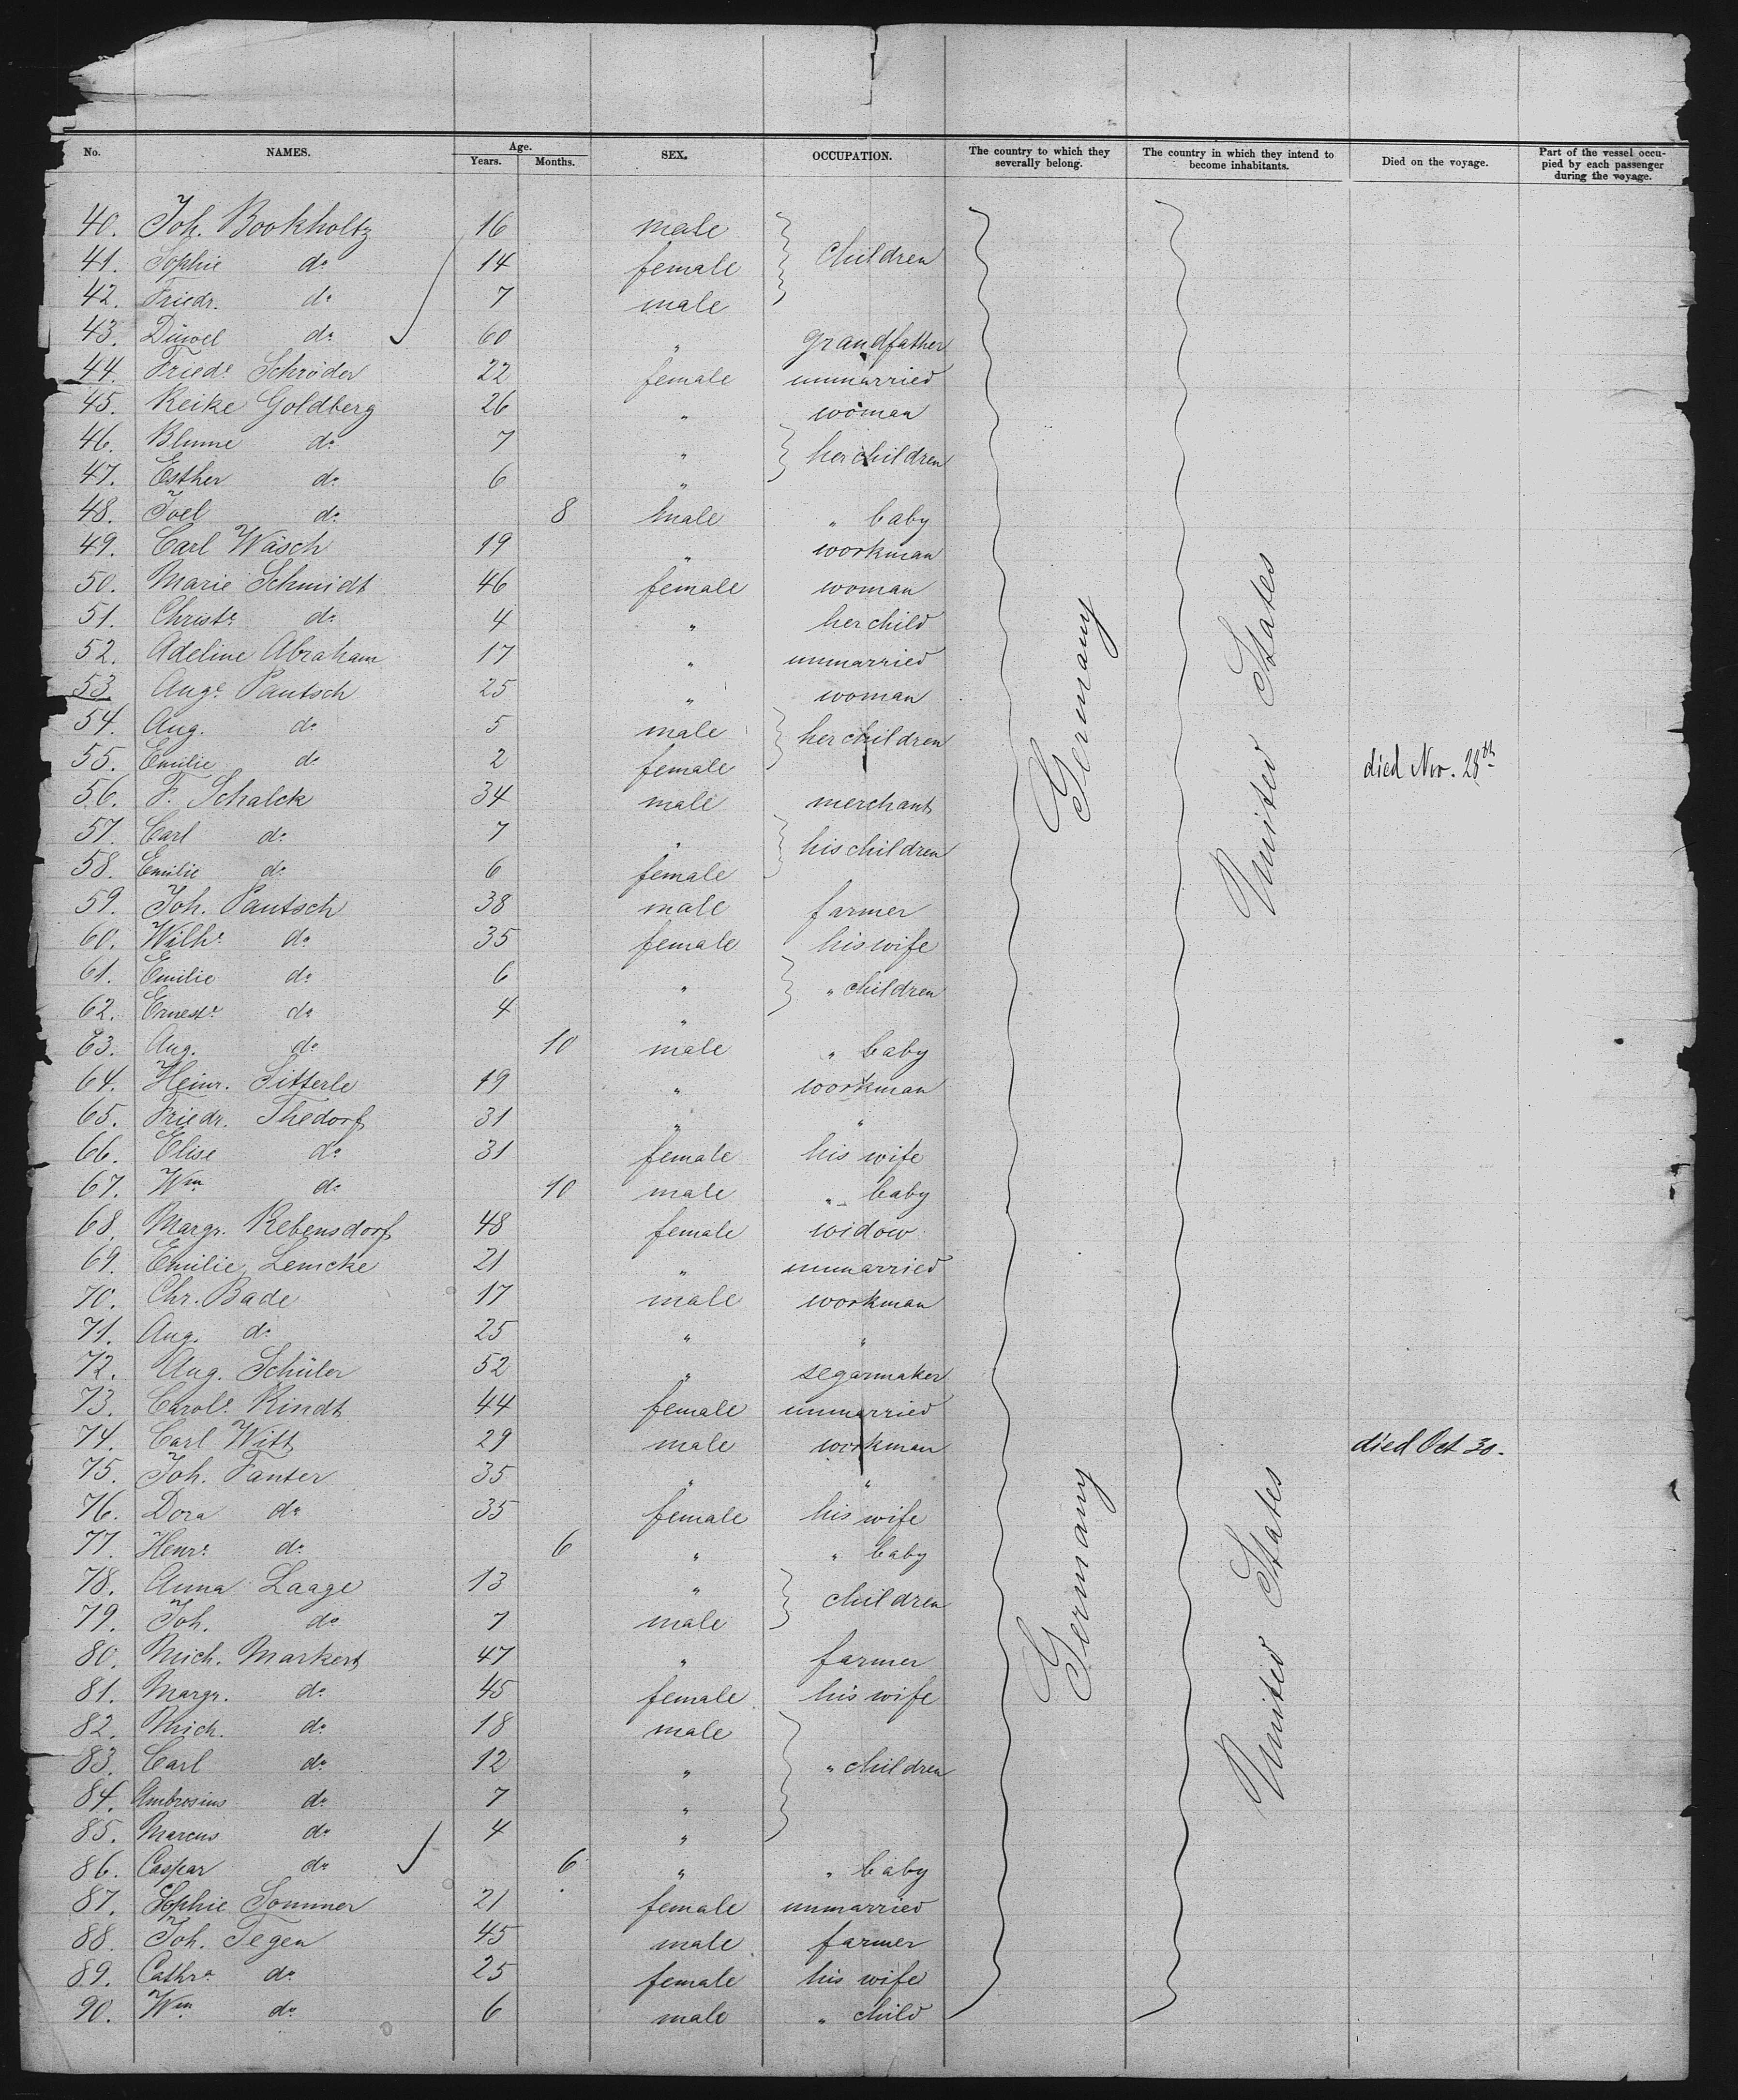 No. NAMES. Age. Years. Months. SEX. OCCUPATION. The country to which they severally belong. The country in which they intend to become inhabitants. Died on the voyage. Part of the vessel occupied by each passenger during the voyage.
40. Joh. Bookholtz 16 male
41. Sophie do 14 female children
42. Friedr. do 7 male
43. Düwel do 60 " grandfather
44. Friede Schröder 22 female unmarried
45. Reike Goldberg 26 " woman
46. Blume do 7 " her children
47. Esther do 6 "
48. Joel do 8 male " baby
49. Carl Wäsch 19 " workman
50. Marie Schmidt 46 female woman
51. Christe do 4 " her child
52. Adeline Abraham 17 " unmarried
53 Auge Pautsch 25 " woman
54. Aug. do 5 male her children
55. Emilie do 2 female died Nov. 28th
56. F. Schalck 34 male merchant
57. Carl do 7 " his children
58. Emilie do 6 female
59. Joh. Pautsch 38 male farmer
60. Wilhe do 35 female his wife
61. Emilie do 6 " " children
62. Erneste do 4 "
63. Aug. do 10 male " baby
64. Heinr. Sitterle 19 " workman
65. Friedr. Thedorf 31 " "
66. Elise do 31 female his wife
67. Wm do 10 male " baby
68. Margr. Rebensdorf 48 female widow
69. Emilie Lemcke 21 " unmarried
70. Chr. Bade 17 male workman
71. Aug. do 25 " "
72. Aug. Schüler 52 " segarmaker
73. Carole Rindt 44 female unmarried
74. Carl Witt 29 male workman died Oct 30.
75. Joh. Fanter 35 " "
76. Dora do 35 female his wife
77. Henre do 6 " " baby
78. Anna Laage 13 " children
79. Joh. do 7 male
80. Mich. Markert 47 " farmer
81. Margr. do 45 female his wife
82. Mich. do 18 male
83. Carl do 12 " " children
84. Ambrosius do 7 "
85. Marcus do 4 "
86. Caspar do 6 " " baby
87. Sophie Sommer 21 female unmarried
88. Joh. Tegen 45 male farmer
89. Cathra do 25 female his wife
90. Wm do 6 male " child
Germany
United States
Germany
United States